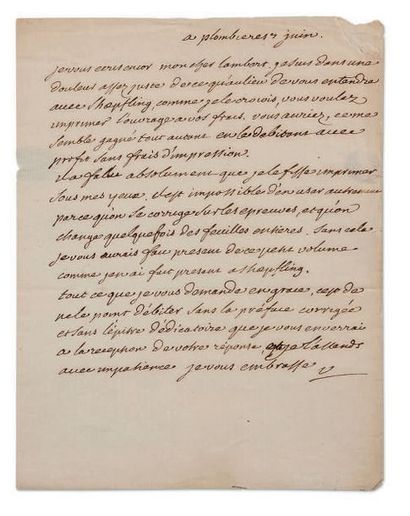 a plombieres 7 juin.
je vous ecris encor mon cher lambert. je suis dans une
douleur assez juste de ce qu'au lieu de vous entendre
avec shepfling, comme je le croiois, vous voulez
imprimer l'ouvrage a vos frais. vous auriez ce me
semble gagné tout autant en le debitant avec
profit sans frais d'impression.
il a falu absolument que je le fisse imprimer
sous mes yeux. il est impossible d'en user autrement
parce qu'on se corrige sur les epreuves, et qu'on
change quelquefois des feuilles entieres. sans cela
je vous aurais fait present de ce petit volume
comme j'en ai fait present a shepfling.
tout ce que je vous demande en grace, c'est de
ne le point débiter sans la préface corrigée
et sans l'épitre dédicatoire que je vous enverrai
a la reception de votre réponse, que j'attends
avec impatience je vous embrasse